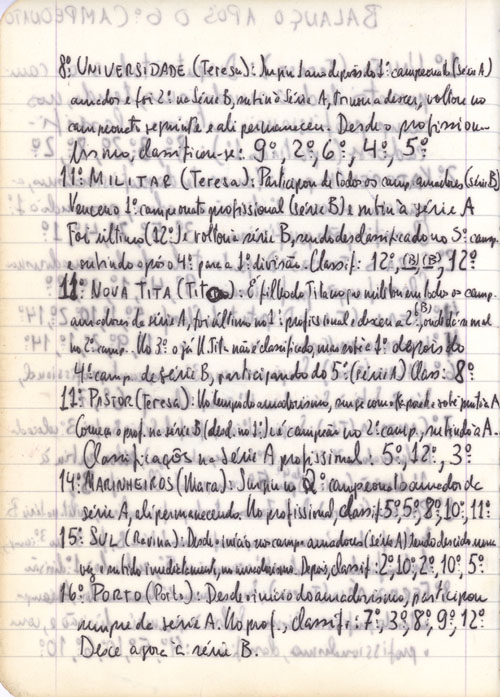 8º UNIVERSIDADE (Teresa): 1 ano depois do 1º campeonato (série A)
amador e foi 2º na série B, subiu à série A, tornou a descer, voltou no
campeonato seguinte e ali permaneceu. Desde o profission-
lismo, classificou-se: 9º, 2º, 6º, 4º, 5º
11º MILITAR (Teresa): Participou de todos os camp. amadores (série B)
Venceu o 1º campeonato profissional (série B) e subiu à série A
Foi último (12º) e voltou a série B, sendo desclassificado no 3º camp.
e subindo após o 4º para a 1ª divisão. Classif: 12º, (B), (B), 12º
11º NOVA TITA (Tito): É filho do Tita no que todos os camp.
amadores da série A, foi último no 1º profissional e desceu a 2ª (B), mal
no 2º camp. No 3º o já N. Tita não é classificado, mas sobe 1º depois do
4º camp. de série B, participando do 5º (série A) Class: 8º
11º PASTOR (Teresa): No tempo do amadorismo, A
Começa o prof. na série B (desd. no 1º) e é campeão no 2º camp., subindo à A.
Classificações na série A profissional: 5º, 12º, 3º
14º MARINHEIROS (Mara): Surgiu no 2º campeonato amador da
série A, ali permanecendo. No profissional, classif: 5º, 5º, 8º, 10º, 11º
15º SUL (Ravina): Desde o início nos camp. amadores (série A) tendo descido uma
vez e subido imediatamente, no amadorismo. Depois, classif: 2º, 10º, 2º, 10º, 5º
16º PORTO (Porto): Desde o início do amadorismo, participou
sempre da série A. No prof., classif: 7º, 3º, 8º, 9º, 12º
Desce agora à série B.